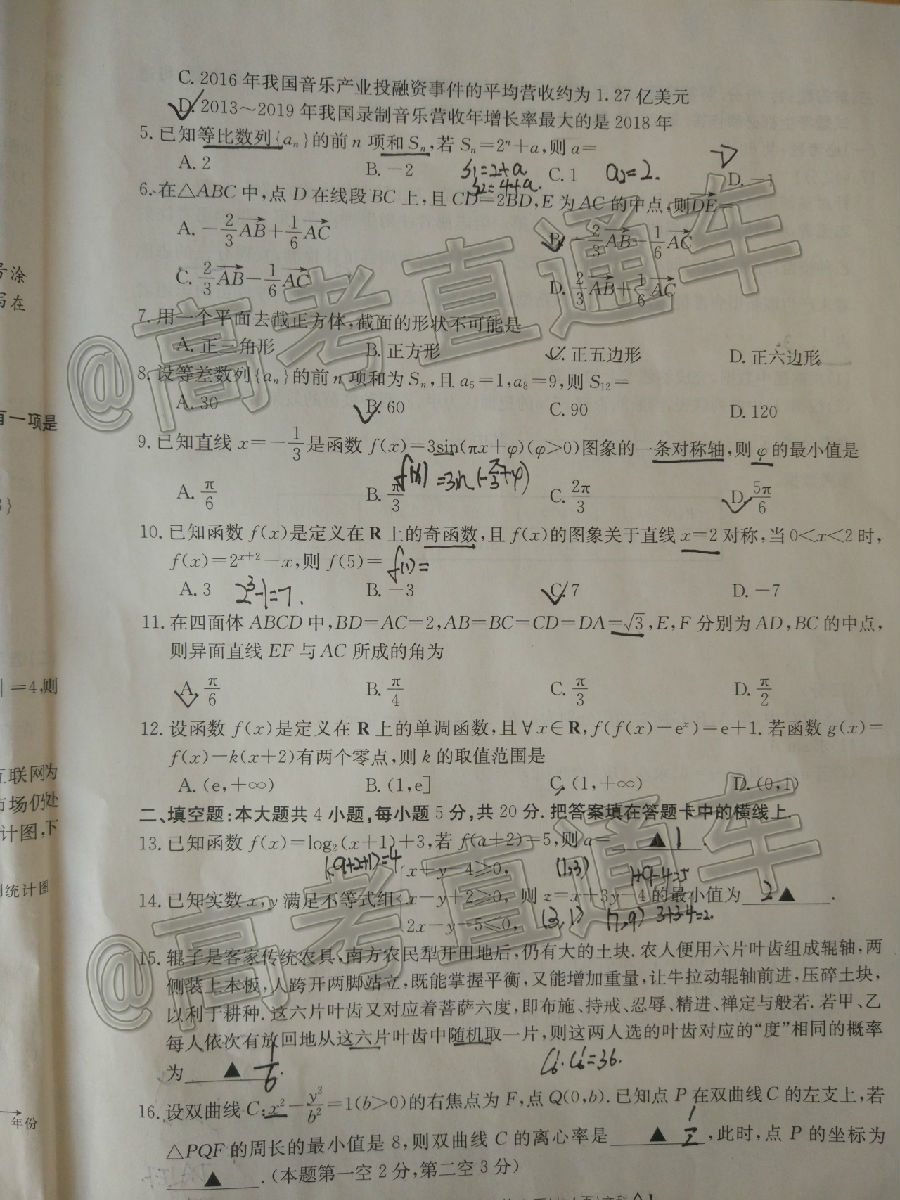 C. 2016 年我国音乐产业投融资事件的平均营收约为 1.27 亿美元
D. 2013～2019 年我国录制音乐营收年增长率最大的是 2018 年
5. 已知等比数列{aₙ}的前 n 项和 Sₙ,若 Sₙ=2ⁿ+a,则 a=
A. 2 B. −2 C. 1 D. −1
S₁=2+a a₂=2.
S₂=4+a.
6. 在△ABC 中,点 D 在线段 BC 上,且 CD=2BD,E 为 AC 的中点,则DE=
A. −2/3 AB+1/6 AC B. −2/3 AB−1/6 AC
C. 2/3 AB−1/6 AC D. 2/3 AB+1/6 AC
7. 用一个平面去截正方体,截面的形状不可能是
A. 正三角形 B. 正方形 C. 正五边形 D. 正六边形
8. 设等差数列{aₙ}的前 n 项和为 Sₙ,且 a₅=1,a₈=9,则 S₁₂=
A. 30 B. 60 C. 90 D. 120
9. 已知直线 x=−1/3 是函数 f(x)=3sin(πx+φ)(φ>0)图象的一条对称轴,则 φ 的最小值是
A. π/6 B. π/3 C. 2π/3 D. 5π/6
10. 已知函数 f(x)是定义在 R 上的奇函数,且 f(x)的图象关于直线 x=2 对称,当 0<x<2 时,
f(x)=2ˣ⁺²−x,则 f(5)= f(1)=
A. 3 B. −3 C. 7 D. −7
2³−1=7.
11. 在四面体 ABCD 中,BD=AC=2,AB=BC=CD=DA=√3,E,F 分别为 AD,BC 的中点,
则异面直线 EF 与 AC 所成的角为
A. π/6 B. π/4 C. π/3 D. π/2
12. 设函数 f(x)是定义在 R 上的单调函数,且∀x∈R,f(f(x)−eˣ)=e+1. 若函数 g(x)=
f(x)−k(x+2)有两个零点,则 k 的取值范围是
A. (e,+∞) B. (1,e] C. (1,+∞) D. (0,1)
二、填空题:本大题共 4 小题,每小题 5 分,共 20 分. 把答案填在答题卡中的横线上.
13. 已知函数 f(x)=log₂(x+1)+3,若 f(a+2)=5,则 a= ▲ 1 .
x+y−4≥0,
14. 已知实数 x,y 满足不等式组 x−y+2≥0, 则 z=x+3y−4 的最小值为 2 ▲ .
2x−y−5≤0,
(3,1) (7,9) 3+3-4=2.
15. 辊子是客家传统农具、南方农民犁开田地后,仍有大的土块. 农人便用六片叶齿组成辊轴,两
侧装上木板,人跨开两脚站立,既能掌握平衡,又能增加重量,让牛拉动辊轴前进,压碎土块,
以利于耕种. 这六片叶齿又对应着菩萨六度,即布施、持戒、忍辱、精进、禅定与般若. 若甲、乙
每人依次有放回地从这六片叶齿中随机取一片,则这两人选的叶齿对应的“度”相同的概率
为 ▲ 1/6 .
16. 设双曲线 C:x²−y²/b²=1(b>0)的右焦点为 F,点 Q(0,b). 已知点 P 在双曲线 C 的左支上,若
△PQF 的周长的最小值是 8,则双曲线 C 的离心率是 ▲ ,此时,点 P 的坐标为
▲ . (本题第一空 2 分,第二空 3 分)
号涂
写在
有一项是
|=4,则
互联网为
市场仍处
计图,下
统计图
年份
@高考直通车
@高考直通车